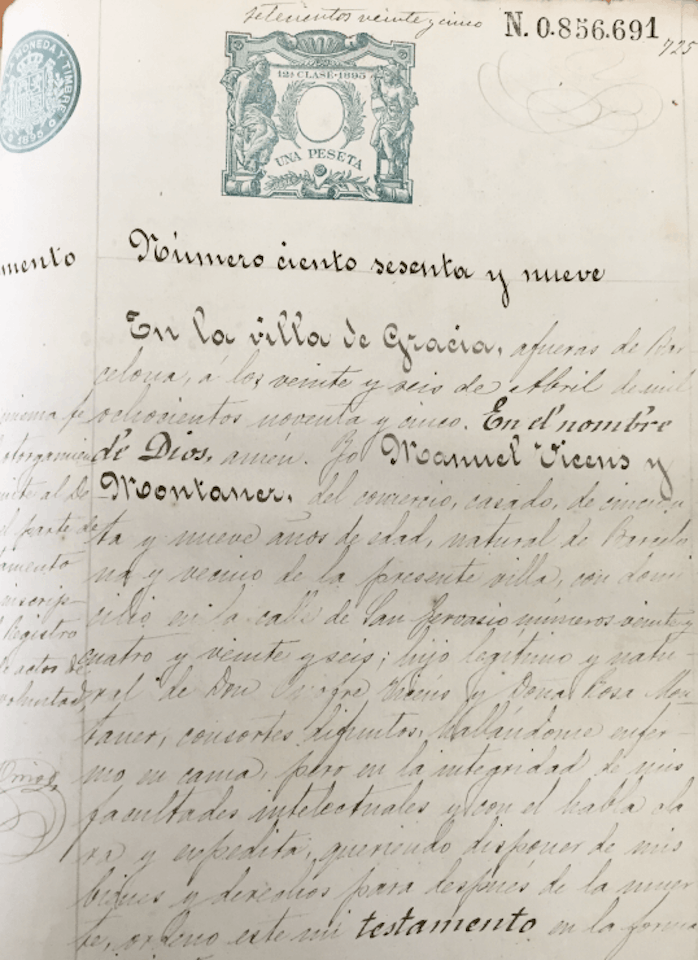 setecientos veinte y cinco
N. 0.856.691
725
MONEDA Y TIMBRE
1895
12ª CLASE·1895
UNA PESETA
Número ciento sesenta y nueve
mento
En la villa de Gracia, afueras de Bar
celona, á los veinte y seis de Abril de mil
ochocientos noventa y cinco. En el nombre
de Dios, amén. Yo Manuel Vicens y
Montaner, del comercio, casado, de cincuen
ta y nueve años de edad, natural de Barcelo
na y vecino de la presente villa, con domi
cilio en la calle de San Gervasio números veinte y
cuatro y veinte y seis; hijo legítimo y natu-
ral de Don Onofre Vicens y Doña Rosa Mon
taner, consortes difuntos, hallándome enfer-
mo en cama, pero en la integridad de mis
facultades intelectuales y con el habla cla
ra y expedita, queriendo disponer de mis
bienes y derechos para despues de la muer
te, ordeno este mi testamento en la forma
otorgamien
parte de
tamento
inscrip-
Registro
de actos de
voluntad